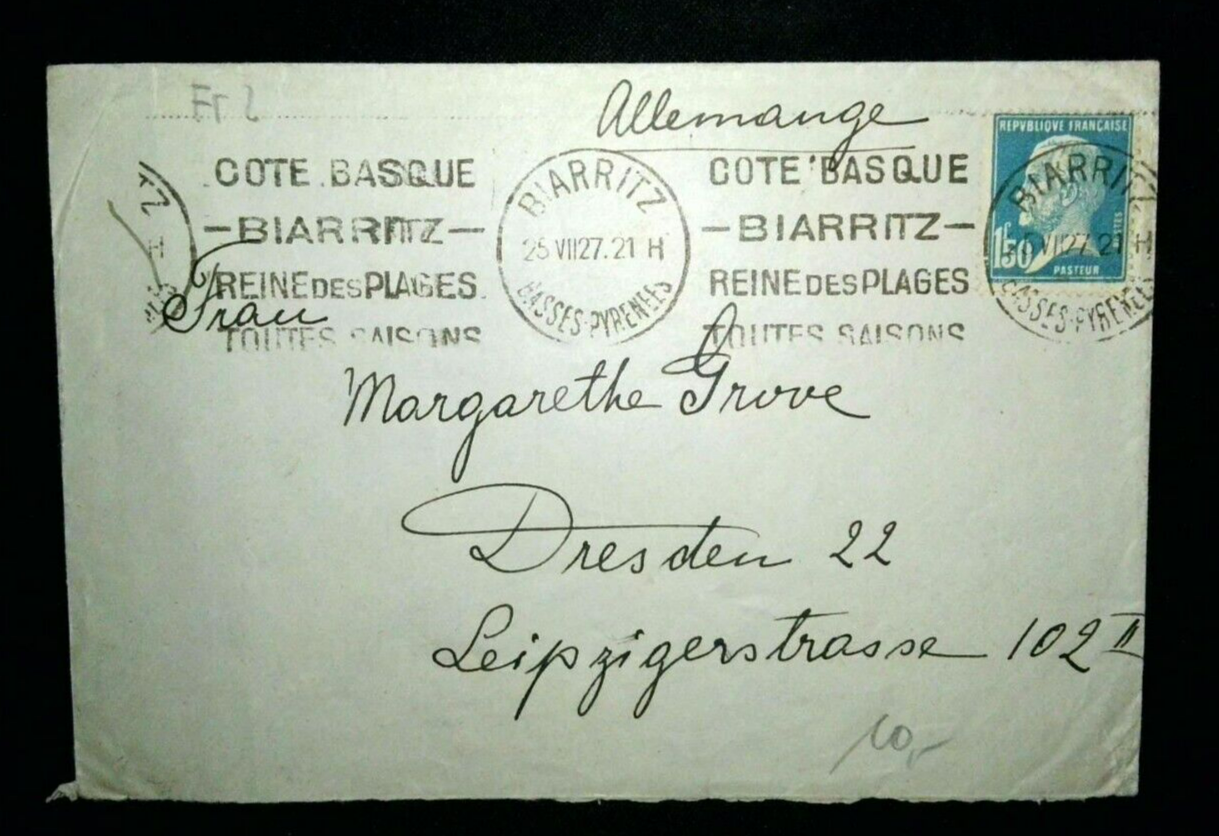 Fr 2
Allemange
COTE BASQUE
—BIARRITZ—
REINE DES PLAGES
TOUTES SAISONS
BIARRITZ
25 VII 27. 21 H
BASSES-PYRENEES
COTE BASQUE
—BIARRITZ—
REINE DES PLAGES
TOUTES SAISONS
REPVBLIQUE FRANÇAISE
1F50
POSTES
PASTEUR
BIARRITZ
VII 27. 21 H
BASSES-PYRENEES
Frau
Margarethe Grove
Dresden 22
Leipzigerstrasse 102 II
10,-